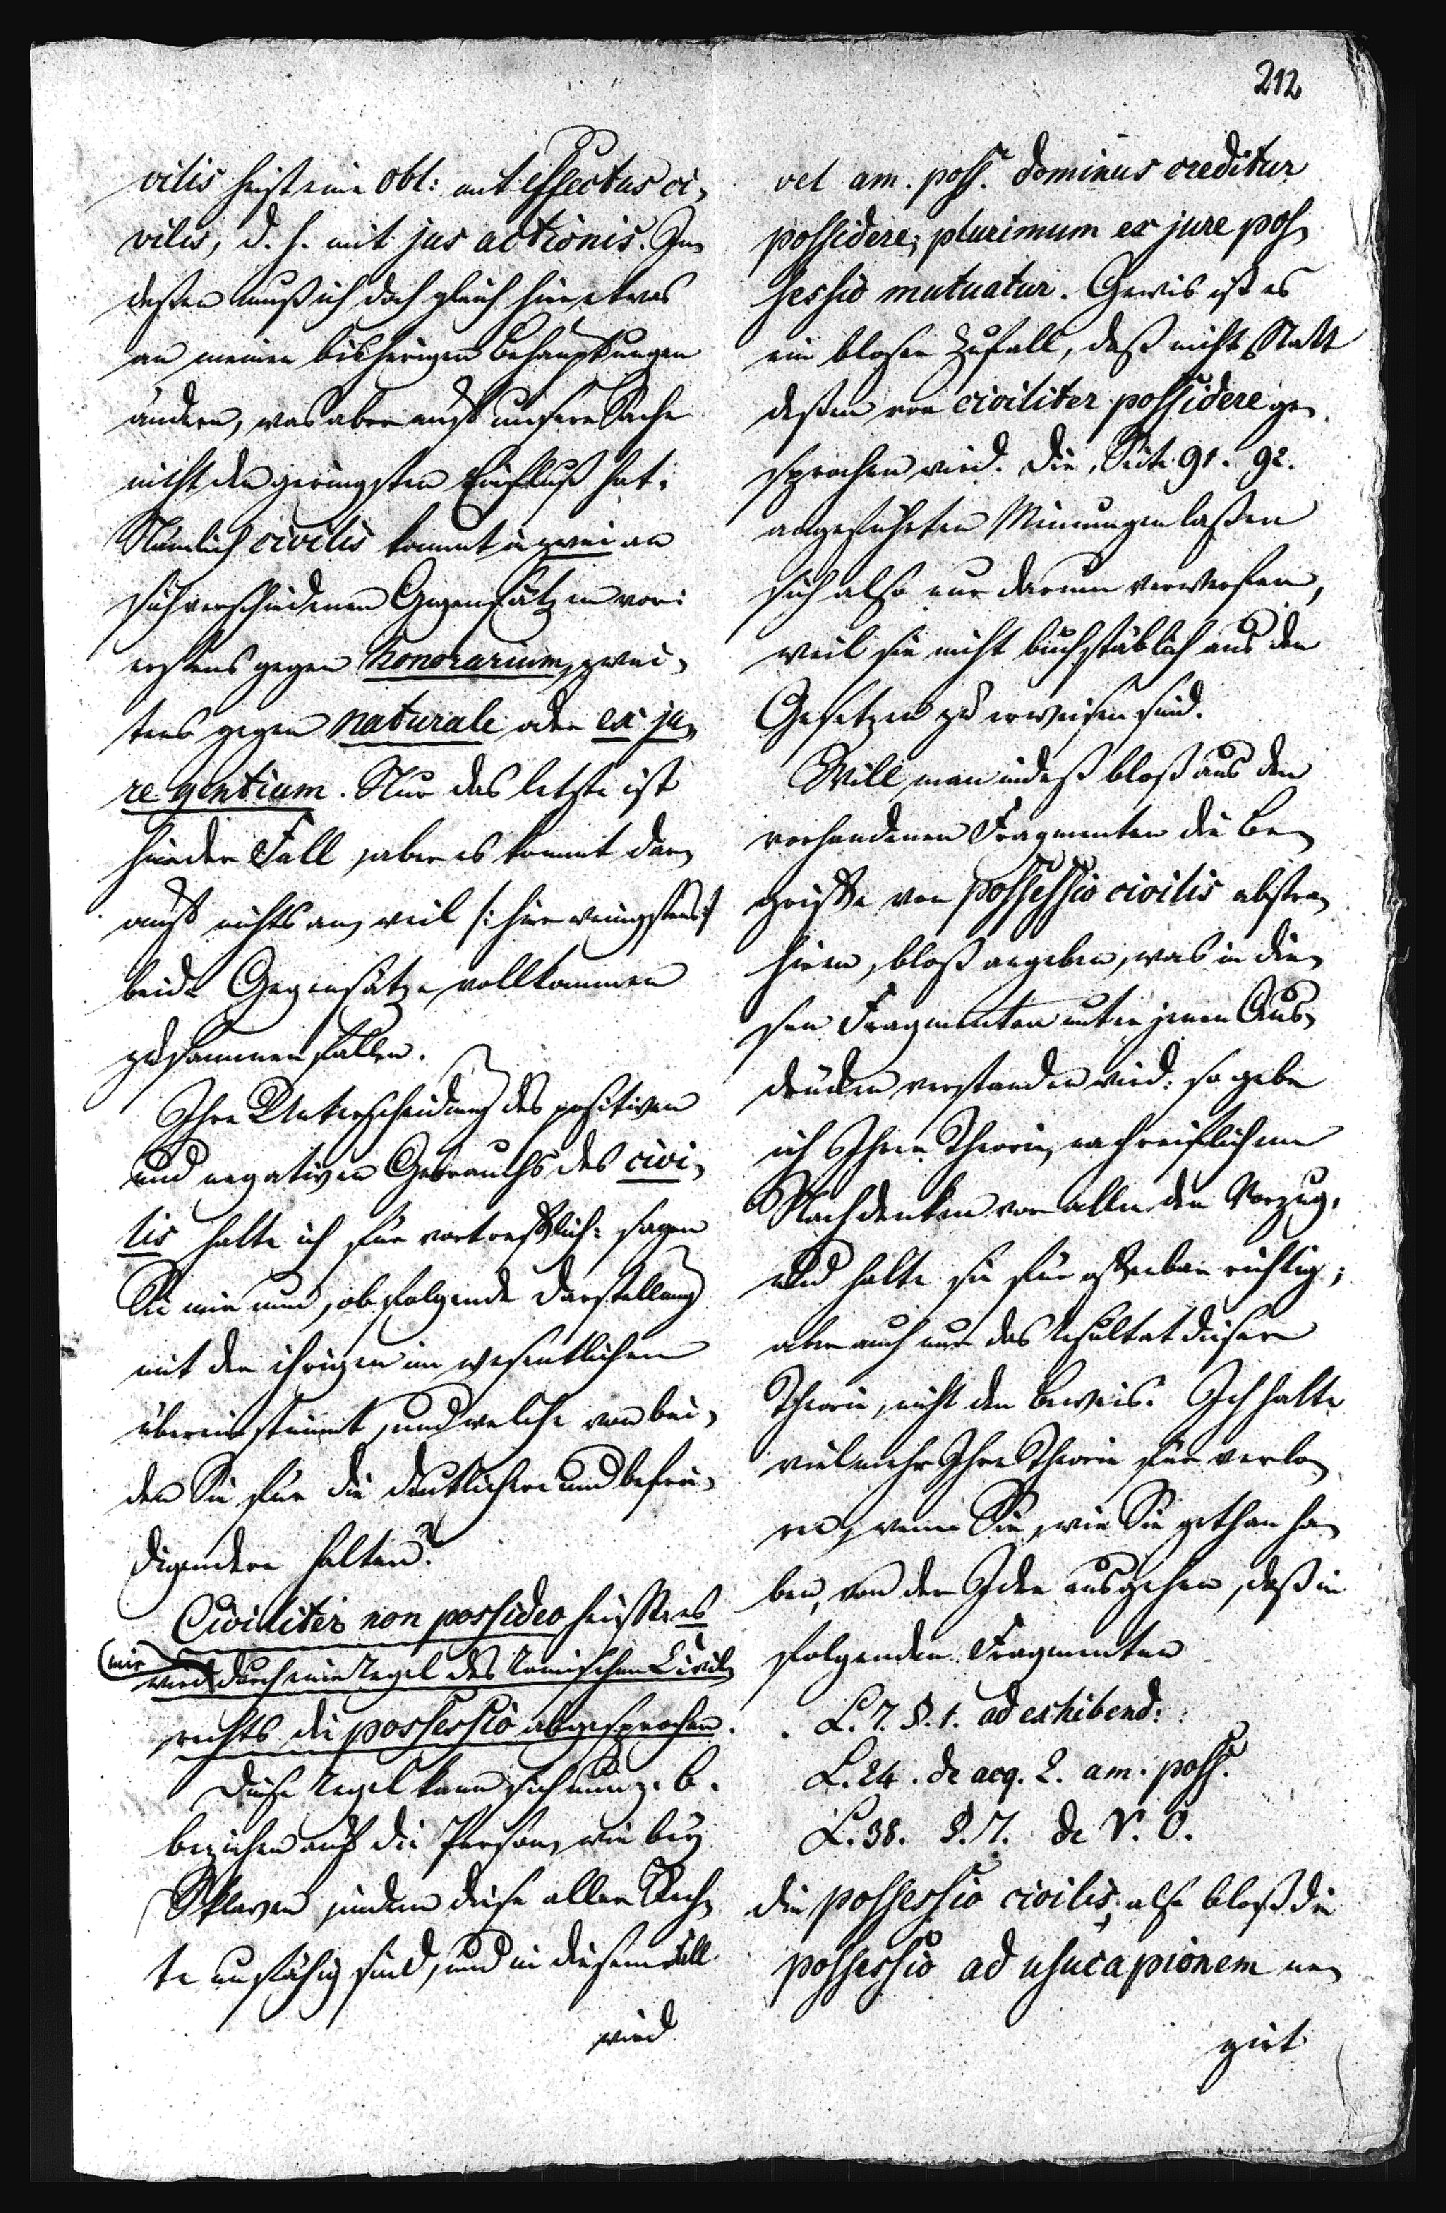 212
vilis heist eine obl: mit effectus ci-
vilis, d. h. mit jus actionis. In-
deßen muß ich doch gleich hier etwas
an meinen bisherigen Behauptungen
ändern, was aber auf unsere Sache
nicht den geringsten Einfluß hat.
Nämlich civilis kommt in zwei an
sich verschiedenen Gegensätzen vor:
erstens gegen honorarium, zwei-
tens gegen naturale oder ex ju-
re gentium. Nur das letzte ist
hier der Fall, aber es kommt dar-
auf nichts an, weil /: hier wenigstens :/
beide Gegensätze vollkommen
zusammenfallen.
Ihre Unterscheidung des positiven
und negativen Gebrauchs des civi-
lis halte ich für vortrefflich: sagen
Sie mir nun, ob folgende Darstellung
mit der ihrigen im wesentlichen
übereinstimmt, und welche von bei-
den Sie für die deutlichere und befrie-
digendere halten?
Civiliter non possideo heißt es
(mir) wird durch eine Regel des Römischen Civil-
rechts die possessio abgesprochen.
Diese Regel kann sich nun z. B.
beziehen auf die Person, wie bey
Sklaven, indem diese aller Rech-
te unfähig sind, und in diesem Fall
wird
vel am. poss. dominus creditur
possidere; plurimum ex jure pos-
sessio mutuatur. Gewis ist es
ein bloser Zufall, daß nicht Statt
deßen von civiliter possidere ge-
sprochen wird. Die, Seite 91. 92.
angeführten Meinungen laßen
sich also nur darum verwerfen,
weil sie nicht buchstäblich aus den
Gesetzen zu erweisen sind.
Will man indeß bloß aus den
vorhandenen Fragmenten die Be-
griffe von possessio civilis abstra-
hiren, bloß angeben, was in die-
sen Fragmenten unter jenen Aus-
drücken verstanden wird: so gebe
ich Ihrer Theorie, nach reiflichem
Nachdenken vor allen den Vorzug,
und halte sie für offenbar richtig;
aber auch nur das Resultat dieser
Theorie, nicht den Beweis. Ich halte
vielmehr Ihre Theorie für verlo-
ren, wenn Sie, wie Sie gethan ha-
ben, von der Idee ausgehen, daß in
folgenden Fragmenten
L. 7. §. 1. ad exhibend:
L. 24. de acq. l. am. poss.
L. 38. §. 7. de V. O.
die possessio civilis, also bloß die
possessio ad usucapionem ne-
girt